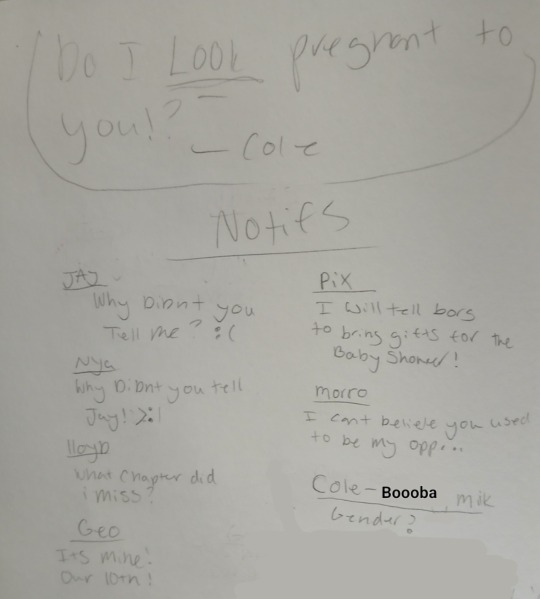 Do I Look pregnant to
you!?
— Cole
Notifs
JAJ
Why Didnt you
Tell me? :(
Nya
Why Didnt you tell
Jay! >:|
lloyD
What Chapter did
i miss?
Geo
Its mine!
Our 10th!
PiX
I Will tell bors
to bring gifts for the
Baby Shower!
morro
I cant believe you used
to be my opp...
Cole - Boooba milk
Gender?